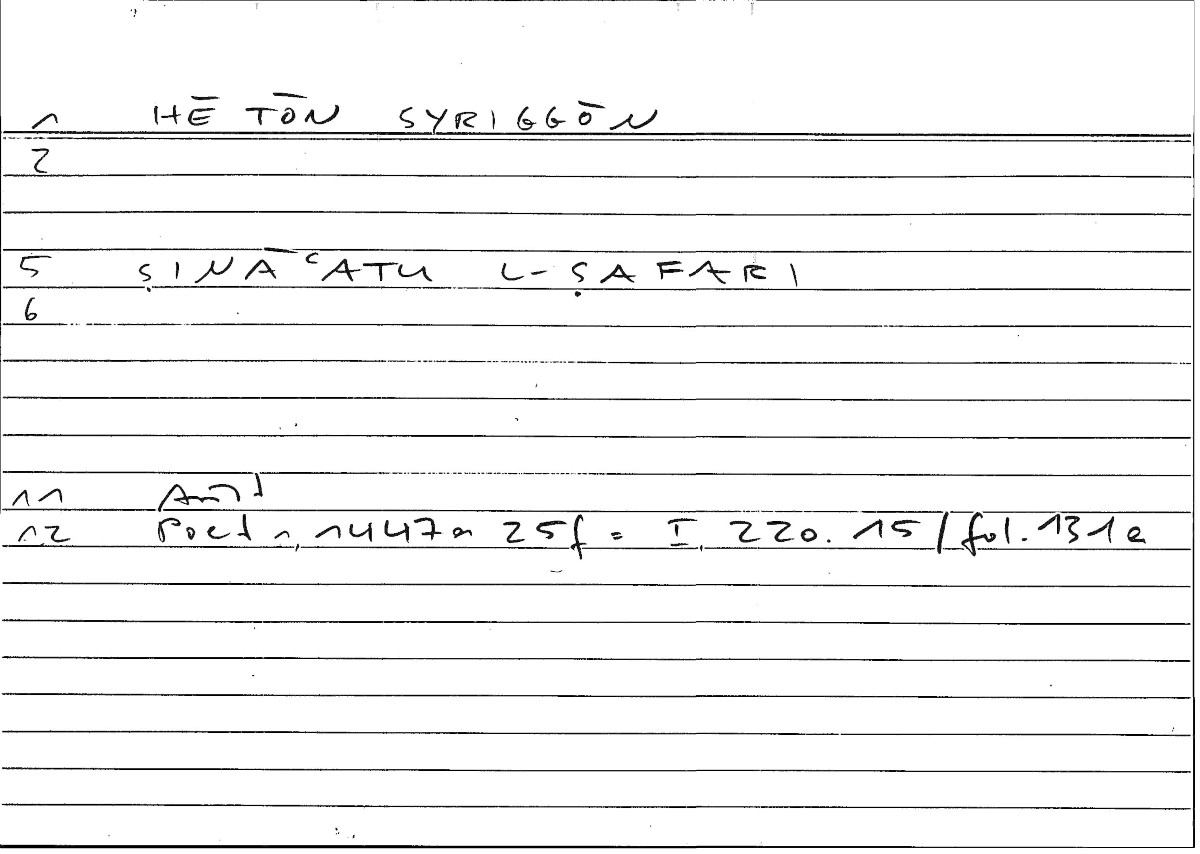 1 HĒ TŌN SYRIGGŌN
2
5 ṢINĀʿATU L-ṢAFARI
6
11
12 Poet 1, 1447a 25f = I, 220.15/fol. 131a